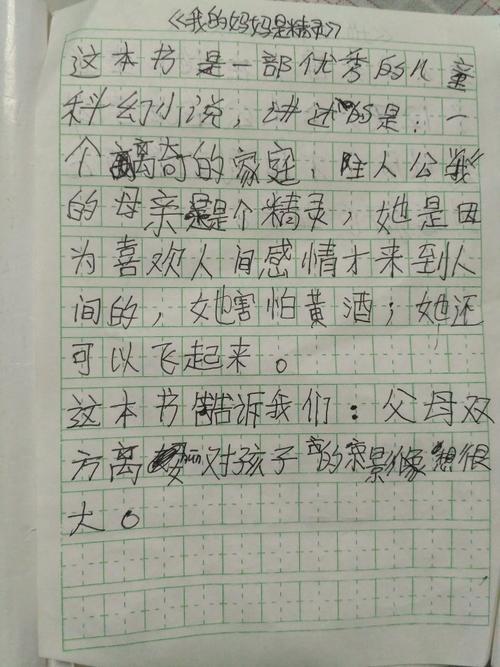 《我的妈妈是精灵》
这本书是一部优秀的儿童
科幻小说，讲述的是：一
个离奇的家庭，主人公"我"
的母亲是个精灵，她是因
为喜欢人间感情才来到人
间的，她害怕黄酒；她还
可以飞起来。
这本书告诉我们：父母双
方离对孩子的影像很
大。